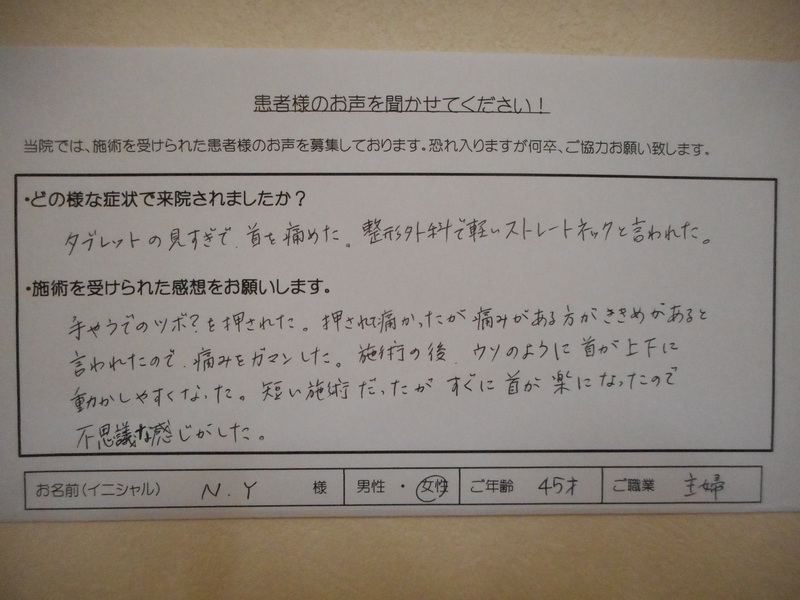 患者様のお声を聞かせてください！
当院では、施術を受けられた患者様のお声を募集しております。恐れ入りますが何卒、ご協力お願い致します。
・どの様な症状で来院されましたか？
タブレットの見すぎで、首を痛めた。整形外科で軽いストレートネックと言われた。
・施術を受けられた感想をお願いします。
手やうでのツボ？を押された。押されて痛かったが痛みがある方がききめがあると
言われたので、痛みをガマンした。施術の後、ウソのように首が上下に
動かしやすくなった。短い施術だったがすぐに首が楽になったので
不思議な感じがした。
お名前（イニシャル） N.Y 様 男性 ・ 女性 ご年齢 45才 ご職業 主婦